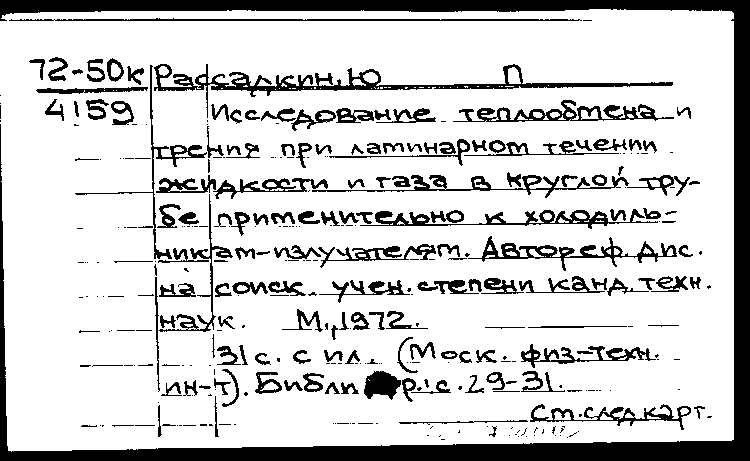 72-50к Рассадкин, Ю П
4159 Исследование теплообмена и
трения при ламинарном течении
жидкости и газа в круглой тру-
бе применительно к холодиль-
никам-излучателям. Автореф. дис.
на соиск. учен. степени канд. техн.
наук. М., 1972.
31 с. с ил. (Моск. физ-техн.
ин-т). Библи р.: с. 29-31.
См. след карт.